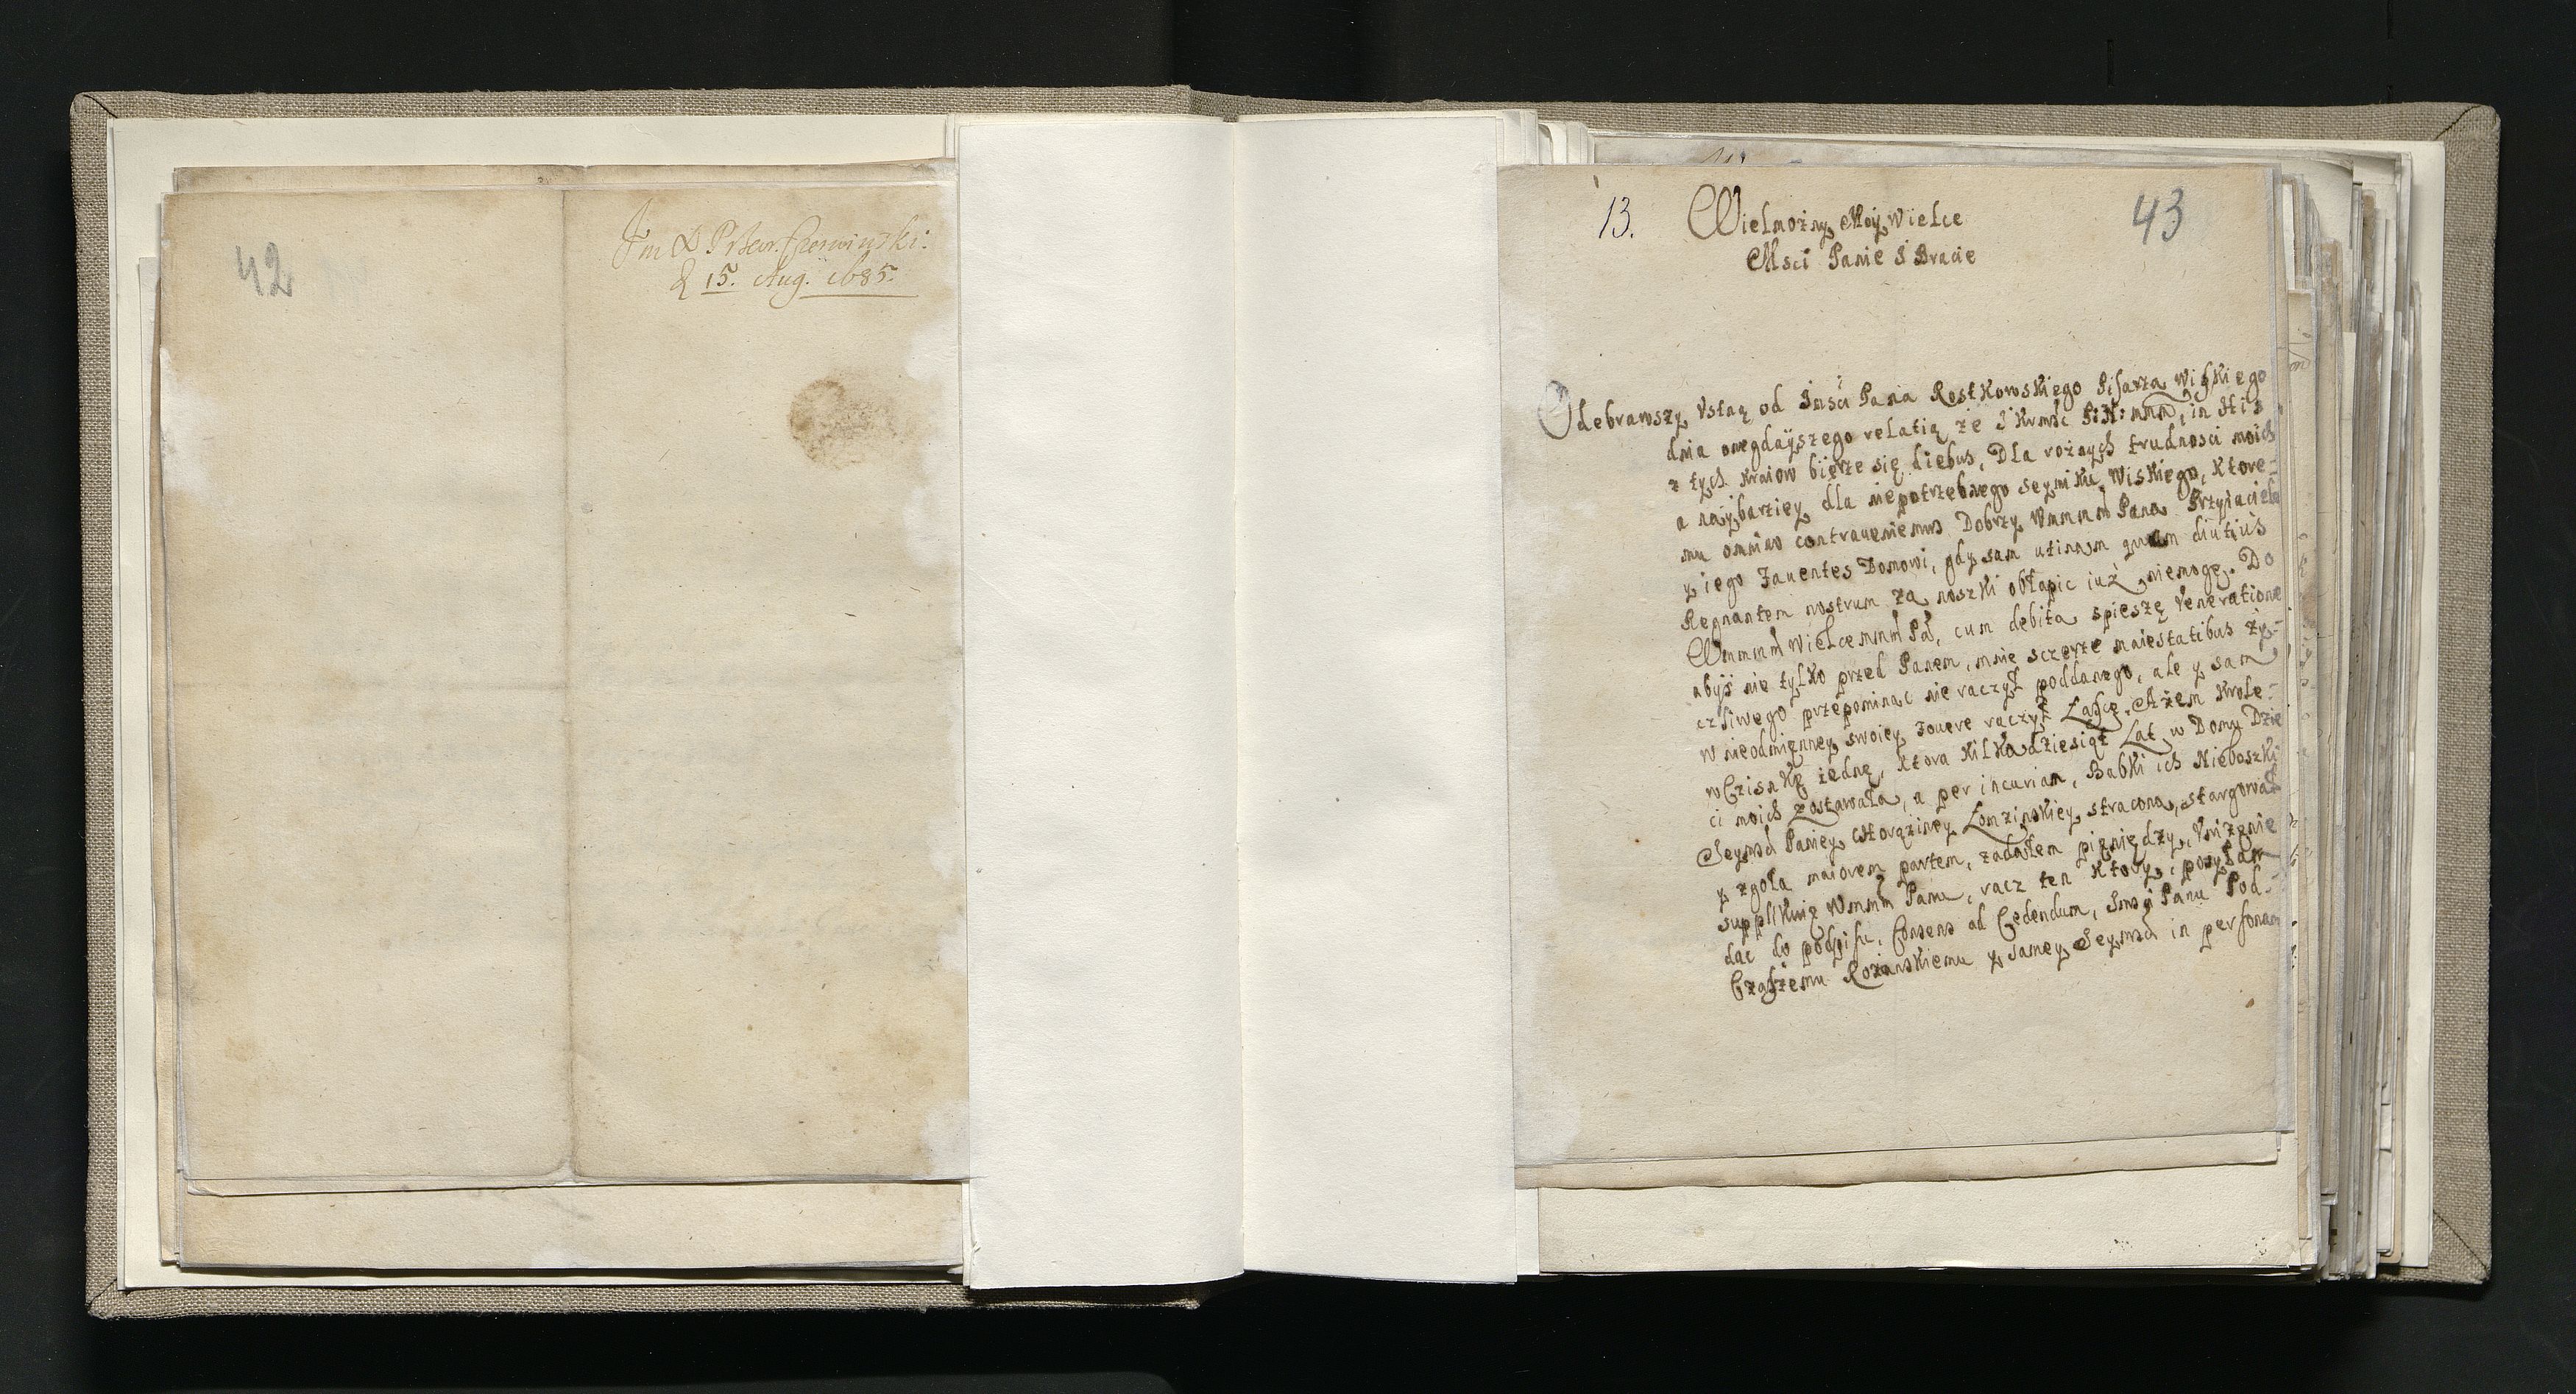 42
15. Aug. 1685.
13.
43
Wielmożny Moy Wielce
Msci Panie I Bracie
Odebrawszy Vstną od Imści Pana Rostkowskiego Pisarza Wiskiego
dnia onegdayszego relatią że I Krmść P: N: mmm, in His
z tych kraiow bierze się diebus, Dla rożnych trudnosci moich
a naybarziey dla niepotrzebnego seymiku Wiskiego, ktore-
mu omnino contraueniemus Dobrzy Wmmm Pana Przyiaciele
y iego Fauentes Domowi, gdy sam utinam quam diutius
Regnantem nostrum za noszki obłapic iuż niemogę. Do
Wmmm Wielcemmm Pa, cum debita spieszę Veneratione
abyś nie tylko przed Panem, mnie sczerze maiestatibus ży-
czliwego przepominac nie raczył poddanego, ale y sam
w nieodmienney swoiey fouere raczył Łasce. Ażem Krole-
wczisnkę iednę, ktora kilkadziesiąt Lat w Domu Dzie
ci moich zostawała, a per incuriam, Babki ich Nieboszki
Ieymsci Paniey Chorąziney Łomzinskiey stracona, stargował
y zgoła maiorem partem, zadałem pieniędzy, Vniżenie
supplikuię Wmmm Panu, racz ten ktory, posyłam
dac do podpisu, Consens ad Cedendum, Imsci Panu Pod-
Czaszemu Rożanskiemu y Samey Ieymsci in personam